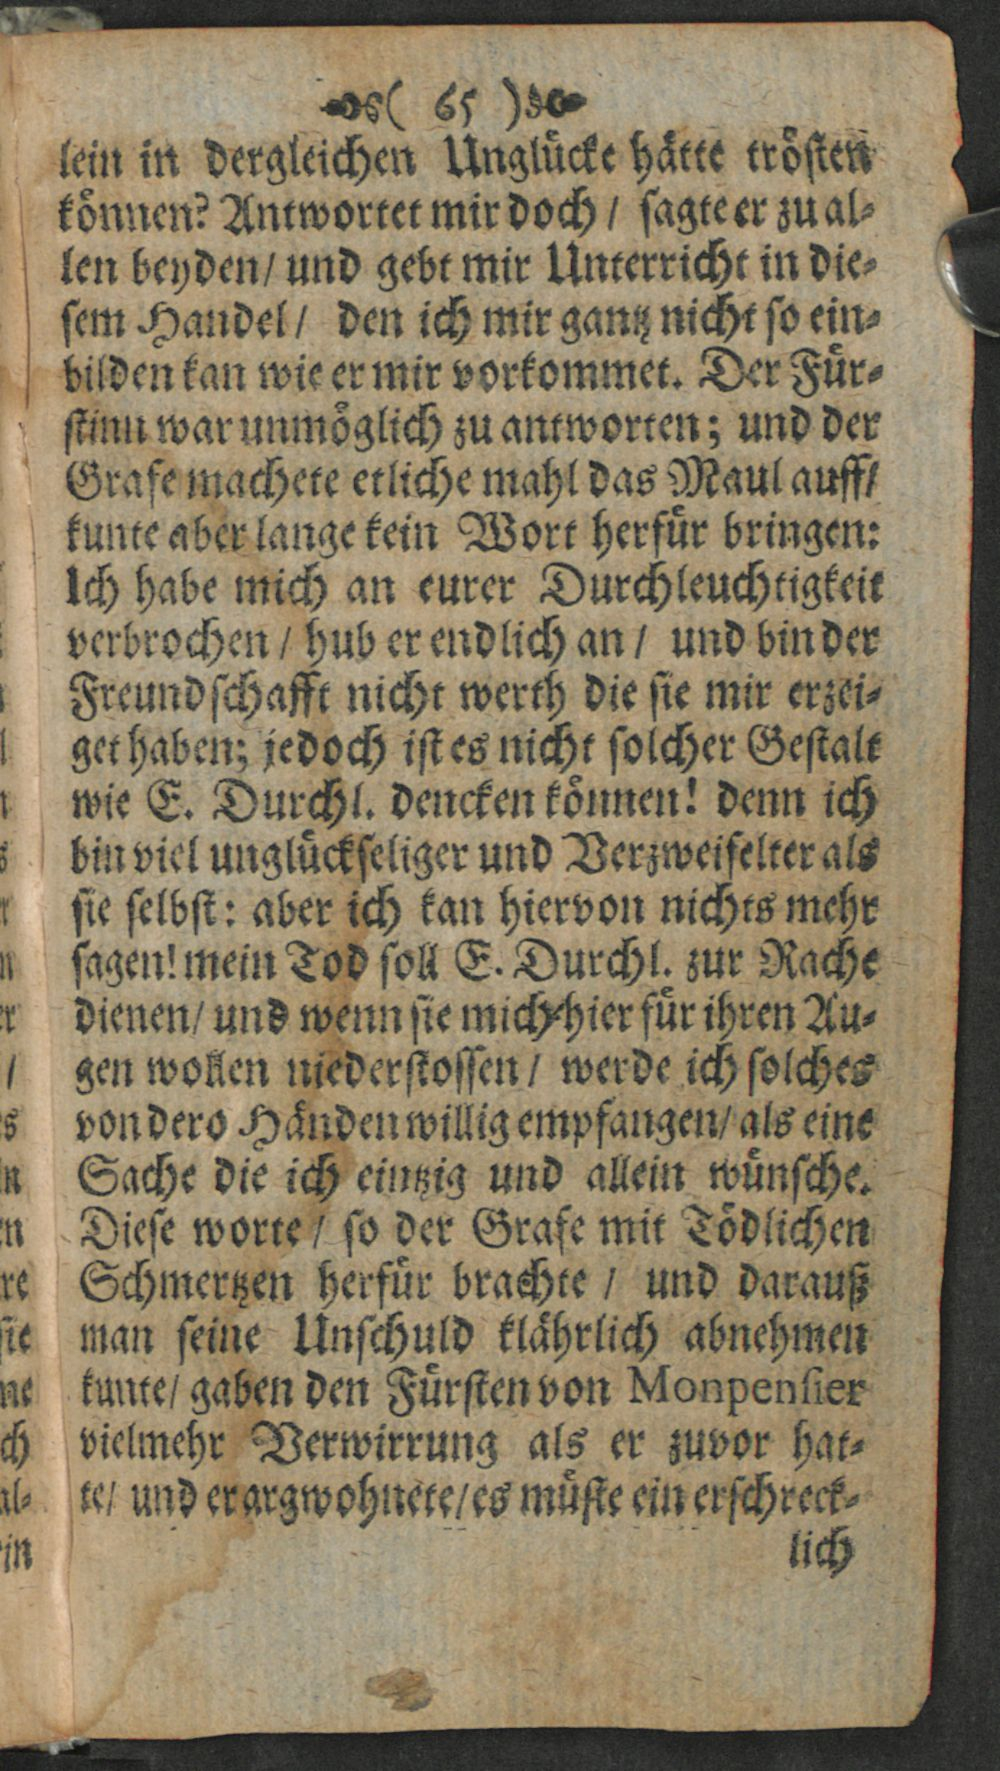 ( 65 )
lein in dergleichen Unglücke hätte trösten
können? Antwortet mir doch / sagte er zu al-
len beyden / und gebt mir Unterricht in die-
sem Handel / den ich mir gantz nicht so ein-
bilden kan wie er mir vorkommet. Der Für-
stinn war unmöglich zu antworten; und der
Grafe machete etliche mahl das Maul auff /
kunte aber lange kein Wort herfür bringen:
Ich habe mich an eurer Durchleuchtigkeit
verbrochen / hub er endlich an / und bin der
Freundschafft nicht werth die sie mir erzei-
get haben; jedoch ist es nicht solcher Gestalt
wie E. Durchl. dencken können! denn ich
bin viel unglückseliger und Verzweifelter als
sie selbst: aber ich kan hiervon nichts mehr
sagen! mein Tod soll E. Durchl. zur Rache
dienen / und wenn sie mich hier für ihren Au-
gen wollen niederstossen / werde ich solches
von dero Händen willig empfangen / als eine
Sache die ich eintzig und allein wünsche.
Diese worte / so der Grafe mit Tödlichen
Schmertzen herfür brachte / und darauß
man seine Unschuld klährlich abnehmen
kunte / gaben den Fürsten von Monpensier
vielmehr Verwirrung als er zuvor hat-
te / und er argwohnete / es müste ein erschreck-
lich